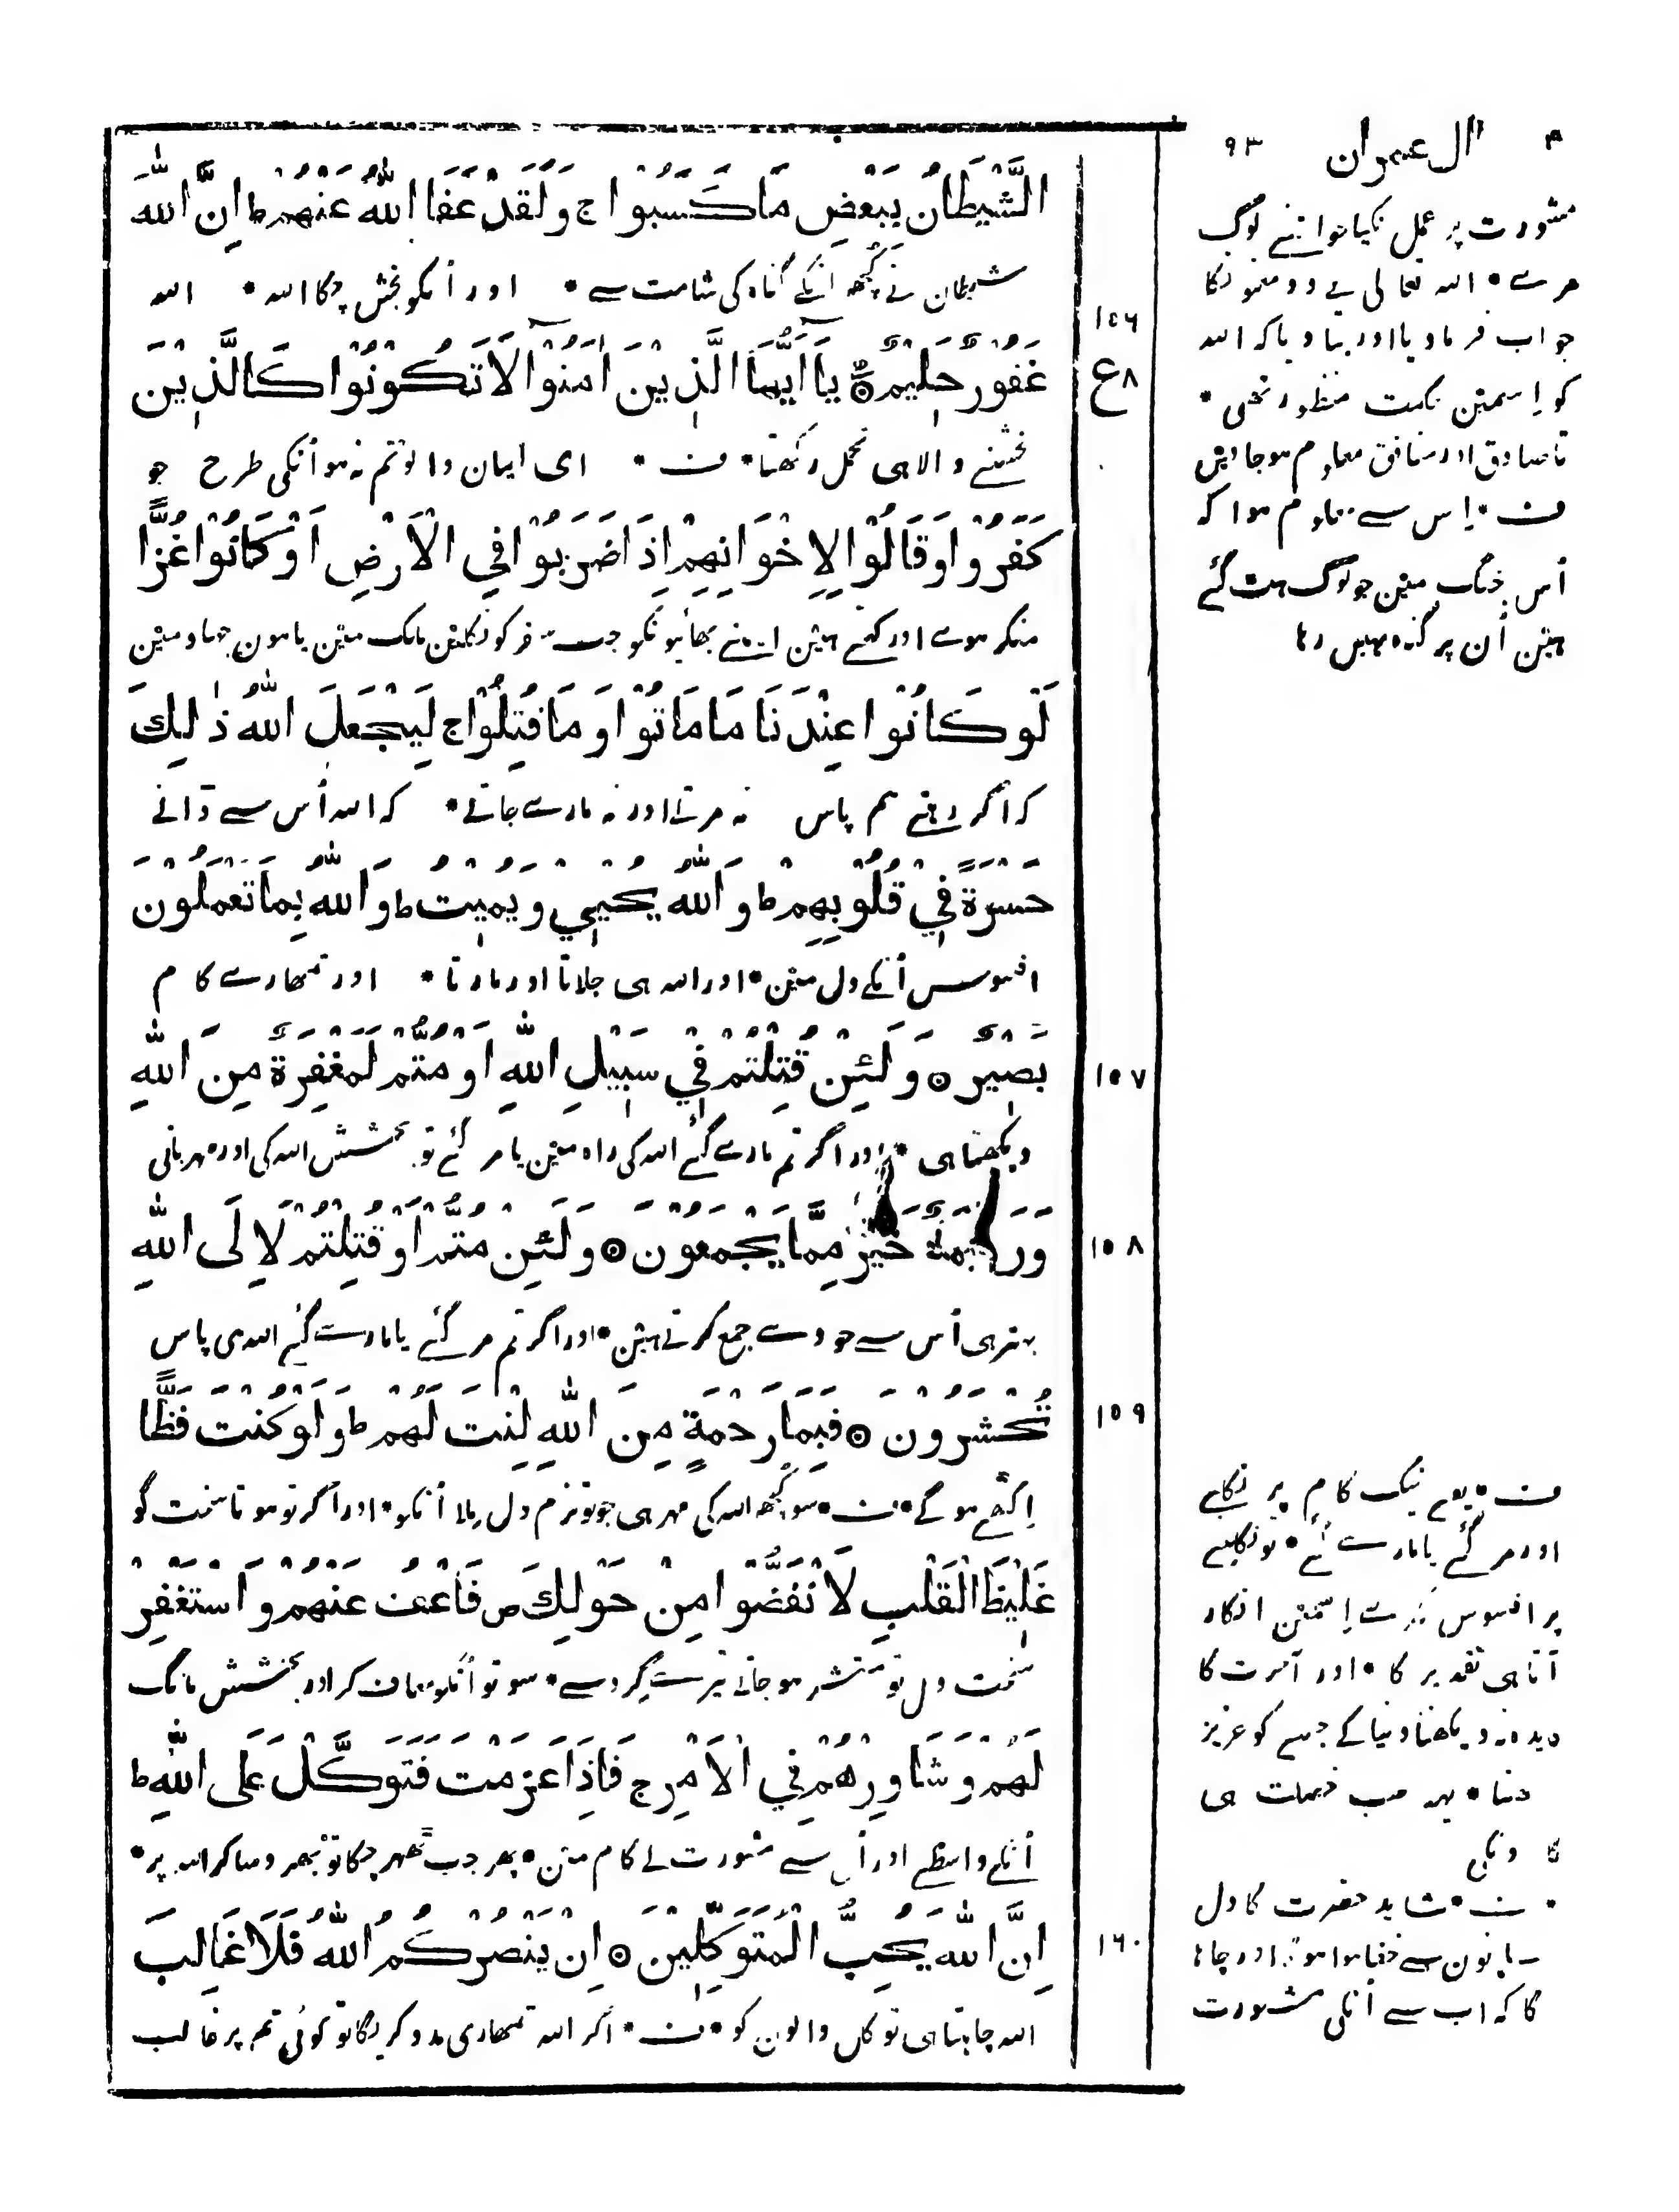 ۴ آل عمران ۹۳
الشَّيْطَانُ بِبَعْضِ مَا كَسَبُوا ج وَلَقَدْ عَفَا اللّٰهُ عَنْهُمْ ط اِنَّ اللّٰهَ
شیطان نے کچھ انکے گناہ کی شامت سے • اور اُنکو بخش چکا اللہ • اللہ
۱۵۶
غَفُوْرٌ حَلِيْمٌ ۞ يَا اَيُّهَا الَّذِيْنَ اٰمَنُوْا لَا تَكُوْنُوْا كَالَّذِيْنَ
ع ۸
بخشنے والا ہی تحمل رکھتا • ف • ای ایمان والو تم نہ ہو اُنکی طرح جو
كَفَرُوْا وَقَالُوْا لِاِخْوَانِهِمْ اِذَا ضَرَبُوْا فِي الْاَرْضِ اَوْ كَانُوْا غُزًّا
منکر ہوے اور کہتے ہیں اپنے بھائیونکو جب سفر کو نکلین ملک مین یا ہون جہاد مین
لَوْ كَانُوْا عِنْدَنَا مَا مَاتُوْا وَمَا قُتِلُوْا ج لِيَجْعَلَ اللّٰهُ ذٰلِكَ
کہ اگر رہتے ہم پاس نہ مرتے اور نہ مارے جاتے • کہ اللہ اُس سے ڈالے
حَسْرَةً فِيْ قُلُوْبِهِمْ ط وَاللّٰهُ يُحْيِيْ وَيُمِيْتُ ط وَاللّٰهُ بِمَا تَعْمَلُوْنَ
افسوس اُنکے دل مین • اور اللہ ہی جلاتا اور مارتا • اور تمھارے کام
بَصِيْرٌ ۞ وَلَئِنْ قُتِلْتُمْ فِيْ سَبِيْلِ اللّٰهِ اَوْ مُتُّمْ لَمَغْفِرَةٌ مِنَ اللّٰهِ
۱۵۷
دیکھتا ہی • اور اگر تم مارے گئے اللہ کی راہ مین یا مر گئے تو بخشش اللہ کی اور مہربانی
وَرَحْمَةٌ خَيْرٌ مِمَّا يَجْمَعُوْنَ ۞ وَلَئِنْ مُتُّمْ اَوْ قُتِلْتُمْ لَاِلَى اللّٰهِ
۱۵۸
بہتر ہی اُس سے جو وے جمع کرتے ہین • اور اگر تم مر گئے یا مارے گئے اللہ ہی پاس
تُحْشَرُوْنَ ۞ فَبِمَا رَحْمَةٍ مِنَ اللّٰهِ لِنْتَ لَهُمْ ط وَلَوْ كُنْتَ فَظًّا
۱۵۹
اِکٹھے ہوگے • ف • سو کچھ اللہ کی مہر ہی جو تو نرم دل ملا اُنکو • اور اگر تو ہوتا سخت گو
غَلِيْظَ الْقَلْبِ لَانْفَضُّوْا مِنْ حَوْلِكَ ص فَاعْفُ عَنْهُمْ وَاسْتَغْفِرْ
سخت دل تو منتشر ہو جاتے تیرے گرد سے • سو تو اُنکو معاف کر اور بخشش مانگ
لَهُمْ وَشَاوِرْهُمْ فِي الْاَمْرِ ج فَاِذَا عَزَمْتَ فَتَوَكَّلْ عَلَى اللّٰهِ ط
اُنکے واسطے اور اُن سے مشورت لے کام مین • پھر جب ٹھہر چکا تو بھروسا کر اللہ پر •
اِنَّ اللّٰهَ يُحِبُّ الْمُتَوَكِّلِيْنَ ۞ اِنْ يَنْصُرْكُمُ اللّٰهُ فَلَا غَالِبَ
۱۶۰
اللہ چاہتا ہی توکل والون کو • ف • اگر اللہ تمھاری مدد کریگا تو کوئی تم پر غالب
مشورت پر عمل نکیا تو اتنے لوگ
مرے • اللہ تعالی نے دو معنونکا
جواب فرما دیا اور بتا دیا کہ اللہ
کو اِسمین حکمت منظور تھی •
تا صادق اور منافق معلوم ہو جاویں
ف • اِس سے معلوم ہوا کہ
اُس جنگ مین جو لوگ ہٹ گئے
ہین اُن پر گناہ نہیں رہا
ف • یعنے نیک کام پر نکلے
اور مر گئے یا مارے گئے • تو نکلنے
پر افسوس نکرے اِسمین انکار
آتا ہی تقدیر کا • اور آخرت کا
دیدہ نہ دیکھنا دنیا کے جینے کو عزیز
رکھنا • یہہ سب خصلت ہی
ف • شاید حضرت کا دل
مسلمانون سے خفا ہوا ہوگا اور چاہا
ہوگا کہ اب سے اُنکی مشورت